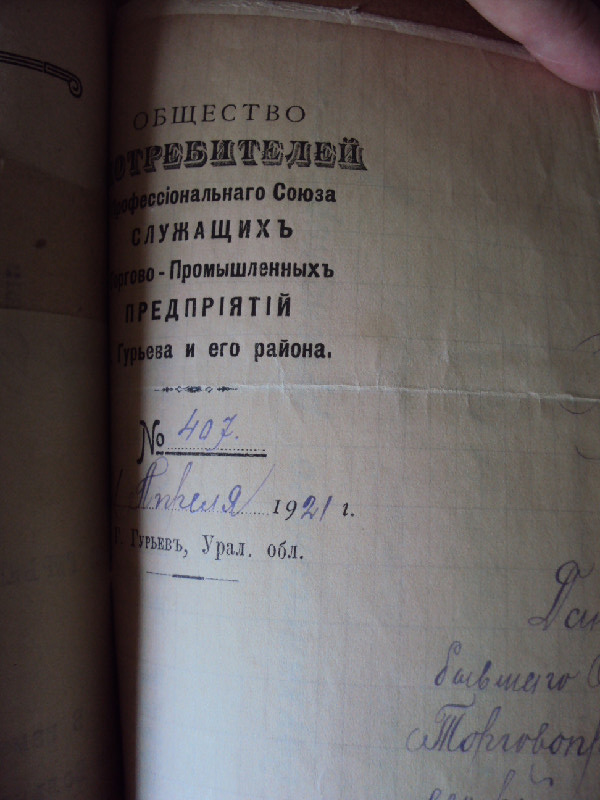 ОБЩЕСТВО
ПОТРЕБИТЕЛЕЙ
Профессіональнаго Союза
СЛУЖАЩИХЪ
Торгово-Промышленныхъ
ПРЕДПРІЯТІЙ
Гурьева и его района.
№ 407.
Апреля 1921 г.
г. Гурьевъ, Урал. обл.
бывшаго
Торговопр